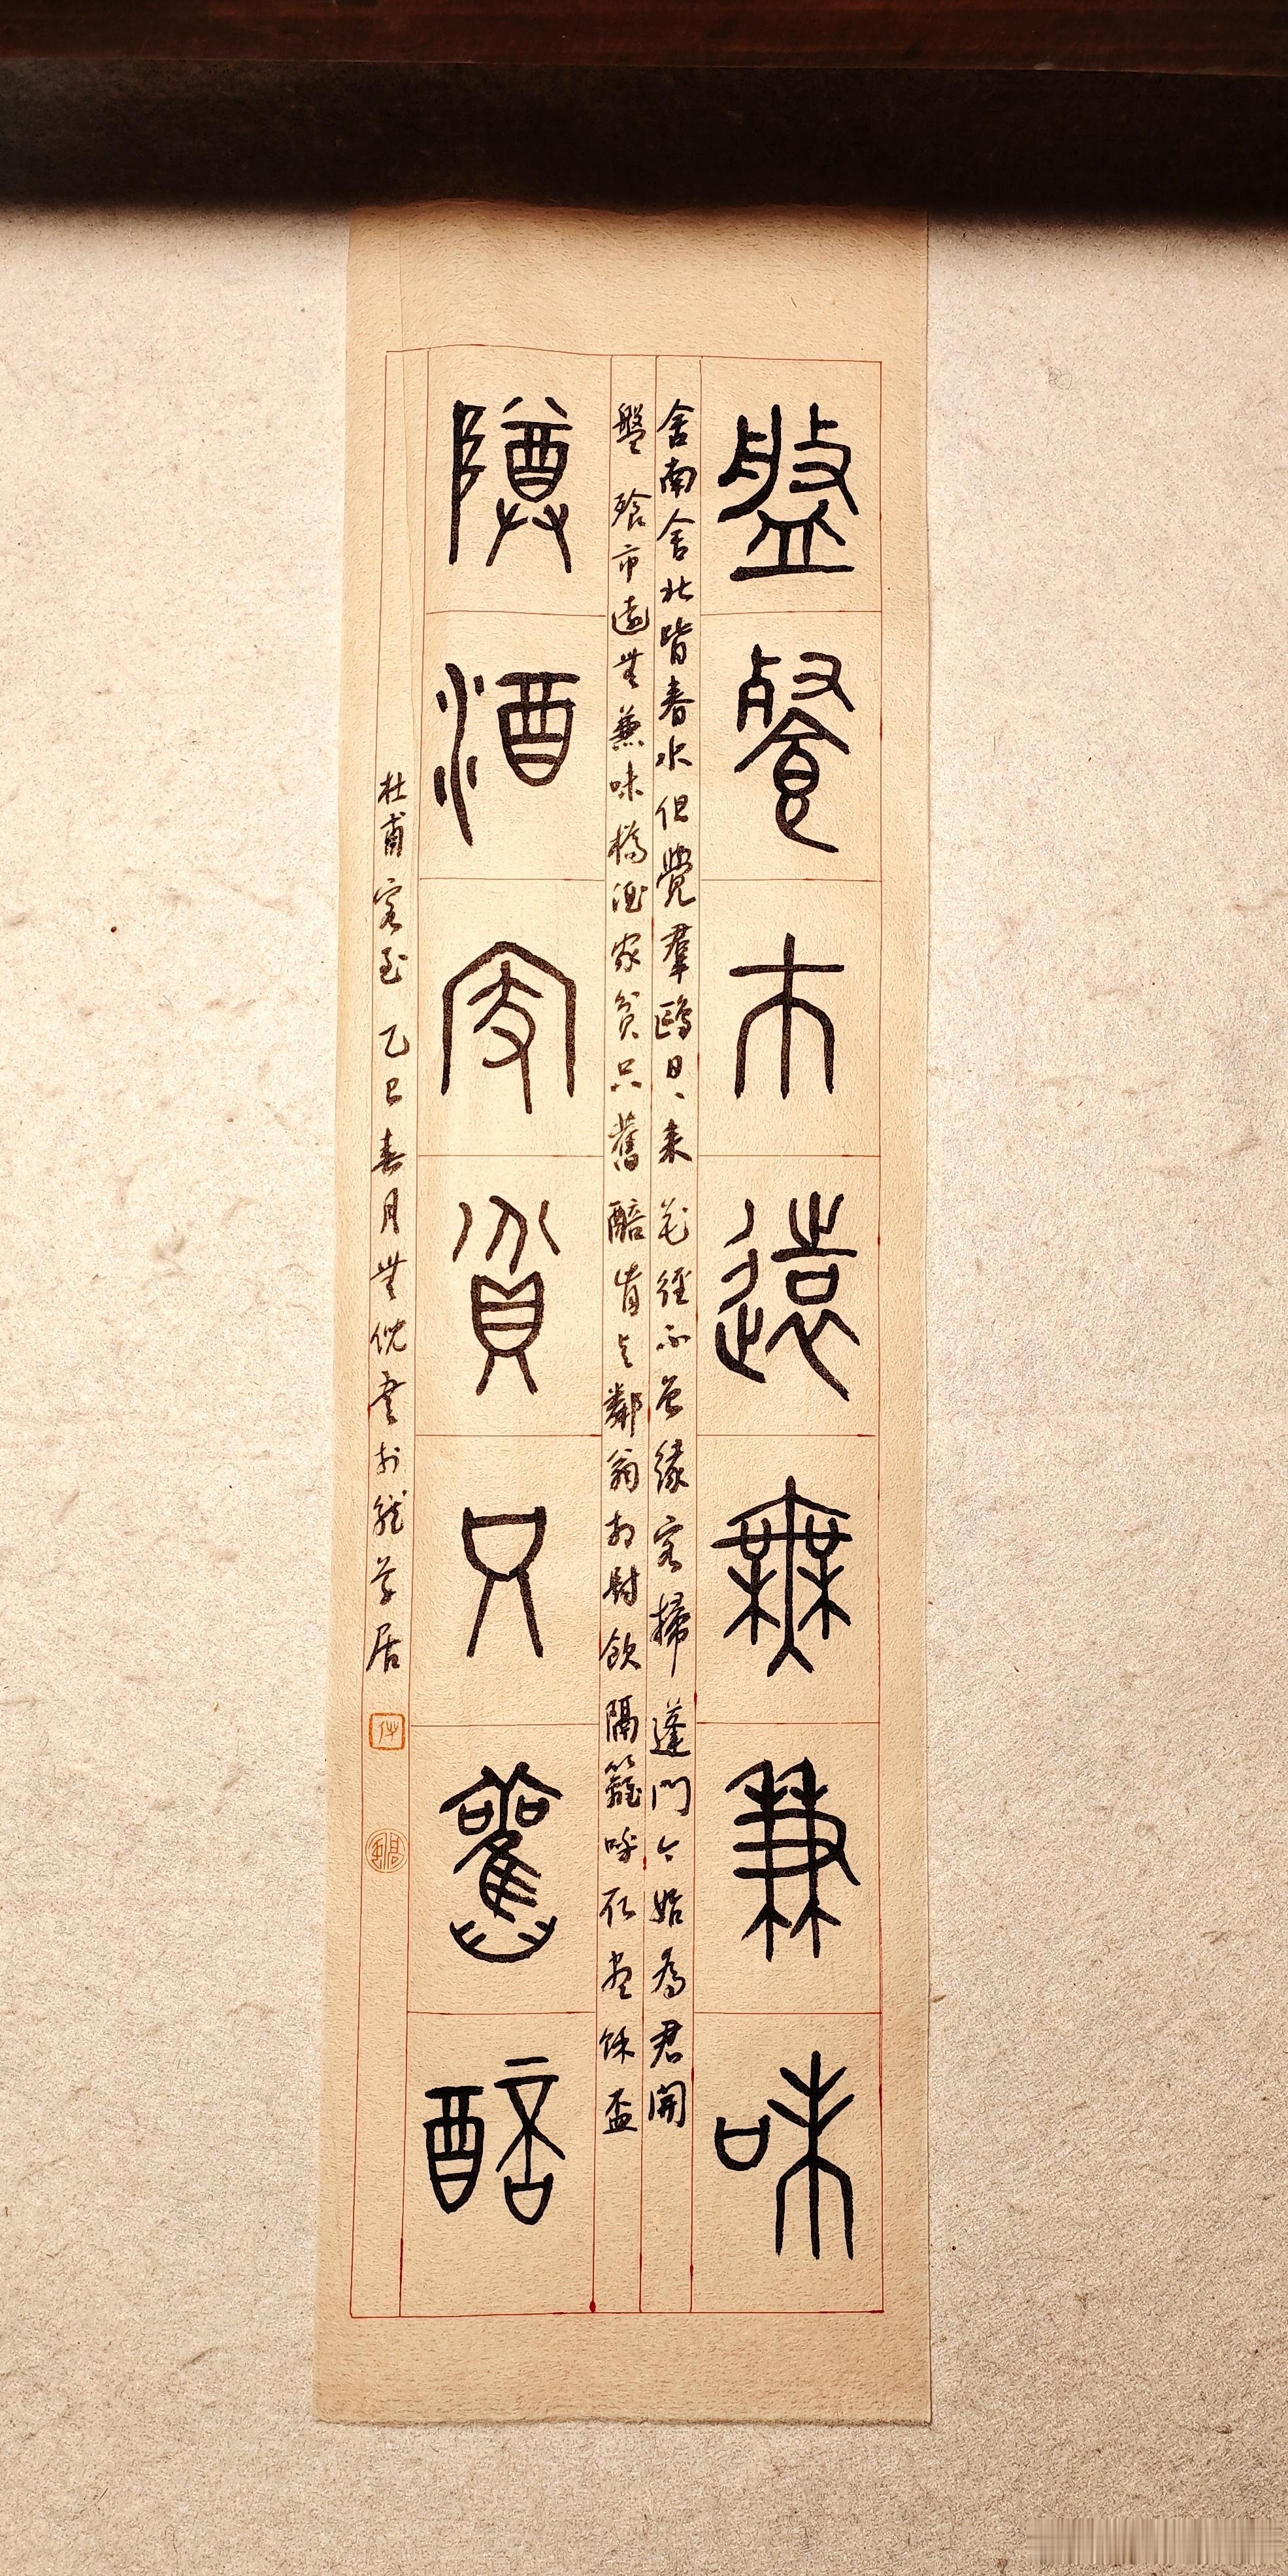 盤餐市遠無兼味
舍南舍北皆春水但覺羣鷗日〻來花徑不曾緣客掃蓬門今始為君開
盤飧市遠無兼味樽酒家貧只舊醅肯与鄰翁相對飲隔籬呼取盡餘盃
樽酒家貧只舊醅
杜甫客至 乙巳春月無倪書於草居